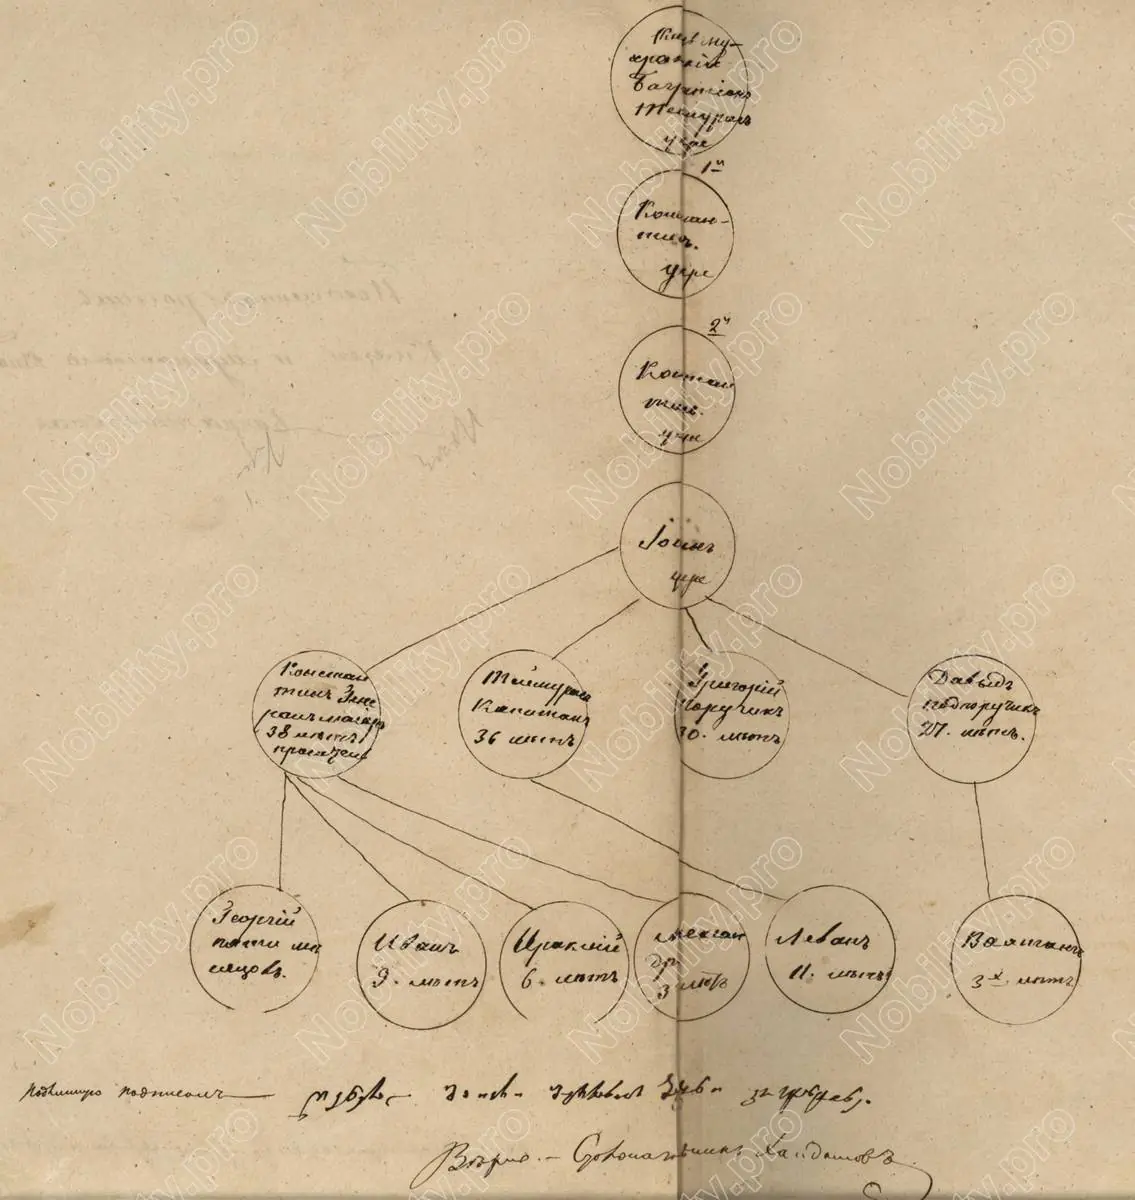 Князь Му-
хранскій
Багратіонъ
Теймуразъ
умре
1й
Костан-
тинъ.
умре
2й
Костан
тинъ.
умре
Іоанъ
умре
Констан
тинъ Гене
ралъ маіоръ
38 лѣтъ
Теймуразъ
Капитанъ
36 лѣтъ
Григорій
Поручикъ
30. лѣтъ
Давыдъ
подпоручикъ
27. лѣтъ.
Георгій
пяти мѣ
сяцовъ.
Иванъ
9. лѣтъ
Ираклій
6. лѣтъ
Алексан
дръ
3 лѣтъ
Леванъ
11. лѣтъ
Вахтангъ
3х лѣтъ
Подлинную подписалъ
Вѣрно. — Столоначальникъ
Nobility.pro